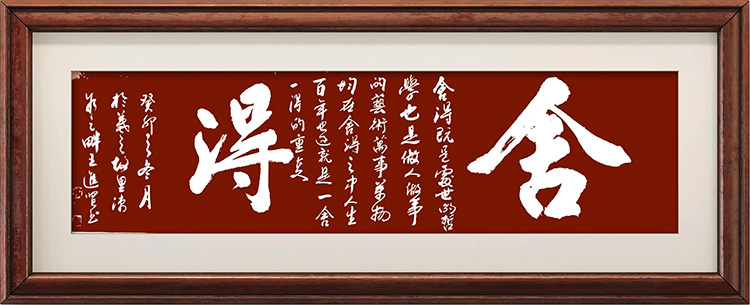 舍
舍得既是處世的哲
學也是做人做事
的藝術萬事萬物
均在舍得之中人生
百年也就是一舍
一得的重复
得
癸卯之冬月
於羲之故里沂
水之畔王進書